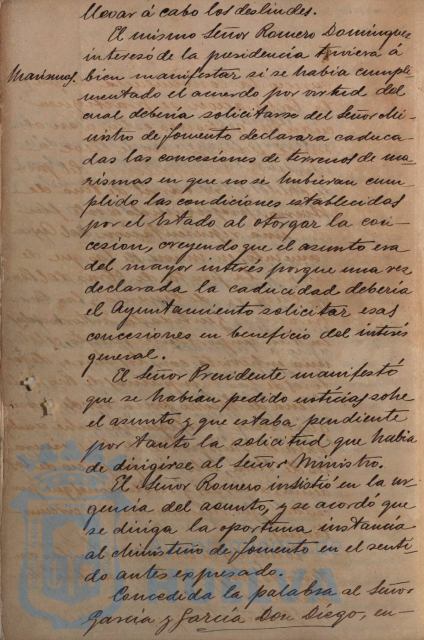 llevar á cabo los deslindes.
El mismo Señor Romero Dominguez
interesó de la presidencia tuviera á
Marismas. bien manifestar si se habia cumpli
mentado el acuerdo por virtud del
cual deberia solicitarse del Señor Mi-
nistro de fomento declarara caduca-
das las concesiones de terrenos de ma-
rismas en que no se hubieran cum-
plido las condiciones establecidas
por el Estado al otorgar la con-
cesion, creyendo que el asunto era
del mayor interés porque una vez
declarada la caducidad deberia
el Ayuntamiento solicitar esas
concesiones en beneficio del interés
general.
El Señor Presidente manifestó
que se habian pedido noticias sobre
el asunto y que estaba pendiente
por tanto la solicitud que habia
de dirigirse al Señor Ministro.
El Señor Romero insistió en la ur
gencia del asunto, y se acordó que
se dirija la oportuna instancia
al Ministerio de fomento en el senti
do antes expresado.
Concedida la palabra al Señor
Garcia y Garcia Don Diego, en-